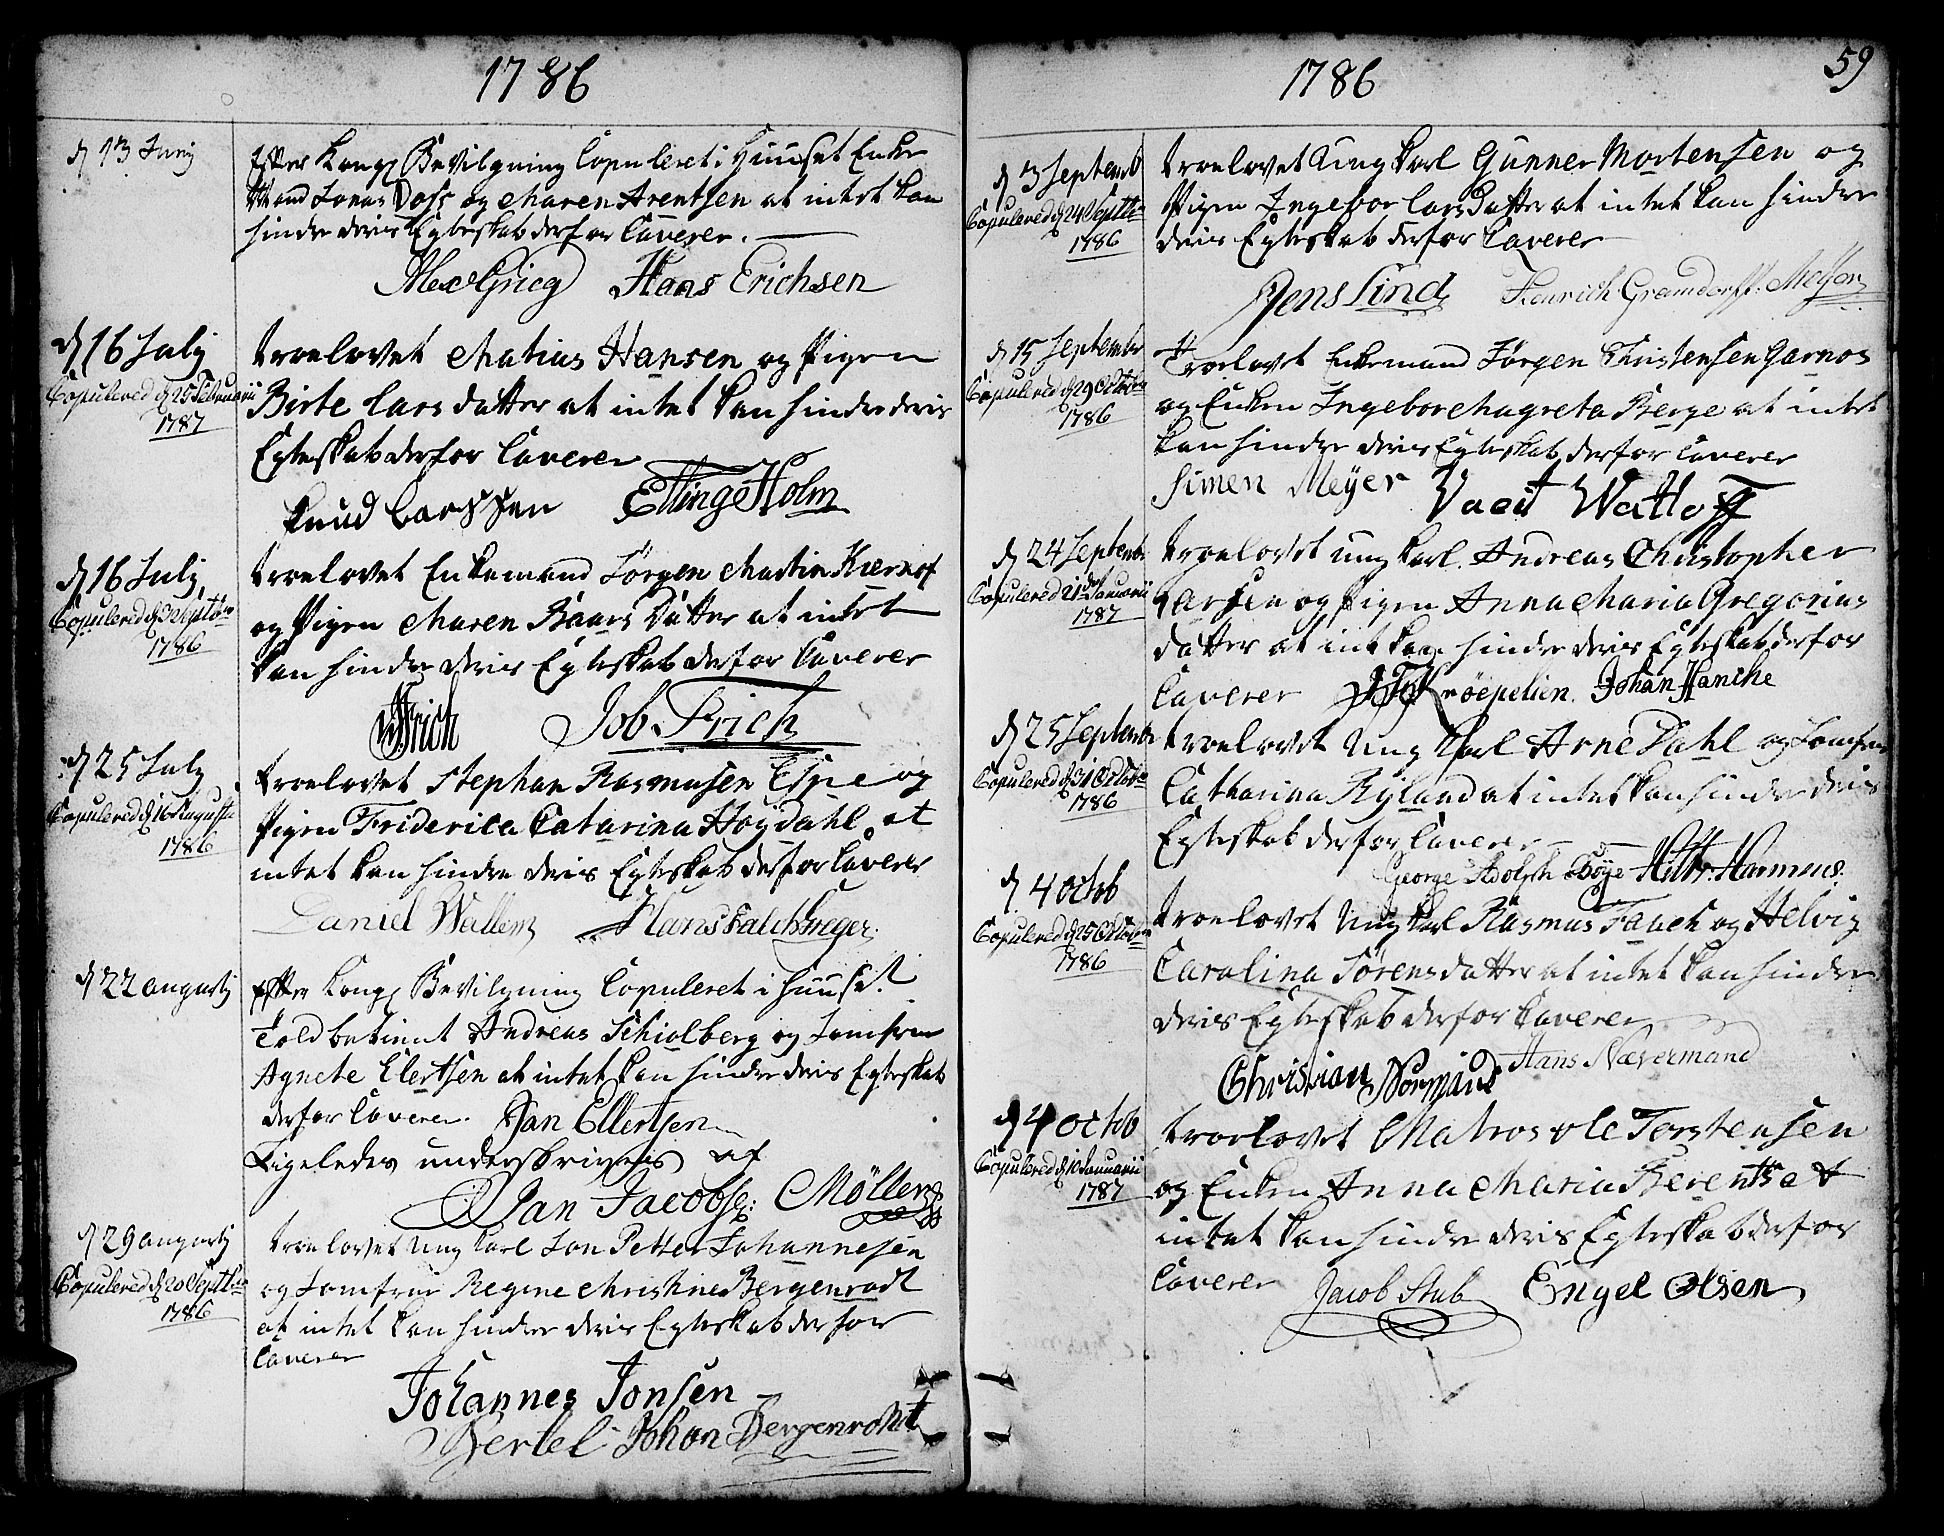 1786
d 13 Junij
Efter Kongl Bevilgning Copuleret i Huuset Enke
Mand Jonas Doss og Maren Arentsen at intet kan
hindre deris Egteskab derfor Caverer.
Alex Grieg Hans Erichsen
d 16 July
Copulered d 25 Februarii
1787
troelovet Matias Hansen og Pigen
Birte Lars datter at intet kan hindre deris
Egteskab derfor Caverer
Knud Larssen Ellinge Holm
d 16 July
Copulered d 3 Septbr
1786
troelovet Enkemand Jørgen Martin Kiernof
og Pigen Maren Baars Datter at intet
kan hindre deris Egteskab derfor Caverer
Frich Job. Frich
d 25 July
Copulered d 16 Augusti
1786
troelovet Stephan Rasmusen Espe og
Pigen Friderica Catarina Høydahl at
intet kan hindre deris Egteskab derfor Caverer
Daniel Wallem Hans Falch Kreyer.
d 22 augusty
Efter Kongl Bevilgning Copuleret i huuset
Told betient Andreas Schiolberg og Jomfrue
Agnete Elertsen at intet kan hindre deris Egteskab
derfor Caverer. Jan Ellertsen
Ligeledes underskrives af
Jan Jacobs: Möller
d 29 augusty
Copulered d 20 Septbr
1786
troelovet Ung Karl Jon Petter Johannesen
og Jomfrue Regine Christine Bergenrodt
at intet kan hindre deris Egteskab derfor
Caverer
Johannes Jonsen
Bertel Johan Bergenrodt
1786
59
d 3 Septemb
Copulered d 24 Septbr
1786
troelovet Ung Karl Gunner Mortensen og
Pigen Ingebor Lars datter at intet kan hindre
deris Egteskab derfor Caverer
Jens Lind Henrich Gramdorff Meyer
d 15 Septembr
Copulered d 29 October
1786
Troelovet Enkemand Jørgen Christensen Garnos
og Enken Ingebor Magreta Berge at intet
kan hindre deris Egteskab derfor Caverer
Simen Meyer Vaeit Wattoff
d 24 Septembr
Copulered 21 den Januarii
1787
troelovet ung Karl. Andreas Christopher
Larsen og Pigen Anna Maria Gregorius
datter at int kan hindre deris Egteskab derfor
Caverer Krøepelien. Johan Hancke
d 25 Septembr
Copulered d 31 Octobr
1786
troelovet Ung Karl Arne Dahl og Jomfrue
Catharina Ryland at intet kan hindre deris
Egteskab derfor Caverer
George Adolph Bøye Hilbr. Harmens.
d 4 octob
Copulered d 25 October
1786
troelovet Ung Karl Rasmus Fanch og Helvig
Carolina Sörens datter at intet kan hindre
deris Egteskab derfor Caverer
Christian Normand Hans Nævermand
d 4 octob
Copulered d 10 Januarii
1787
troelovet Matros ole Torstensen
og Enken Anna Maria Berentse at
intet kan hindre deris Egteskab derfor
Caverer
Jacob Stub Engel Olsen